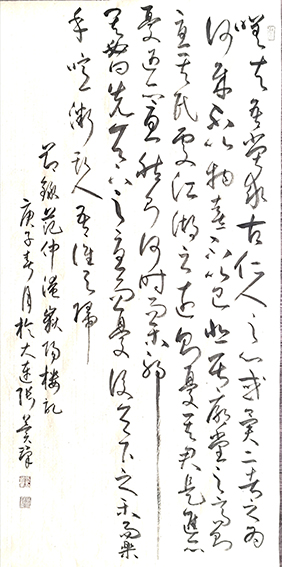 嗟夫予嘗求古仁人之心或異二者之為
何哉不以物喜不以己悲居廟堂之高則
憂其民處江湖之遠則憂其君是進亦
憂退亦憂然則何時而樂耶
其必曰先天下之憂而憂後天下之樂而樂
乎噫微斯人吾誰與歸
節錄范仲淹嶽陽樓記
庚子春月於大連張